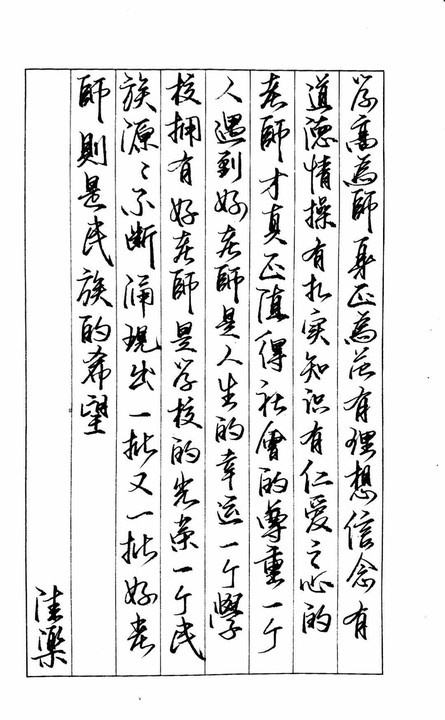 学高為師身正為范有理想信念有
道德情操有扎实知识有仁爱之心的
老師才真正值得社會的尊重一个
人遇到好老師是人生的幸运一个學
校拥有好老師是学校的光荣一个民
族源々不断涌现出一批又一批好老
師則是民族的希望
樂